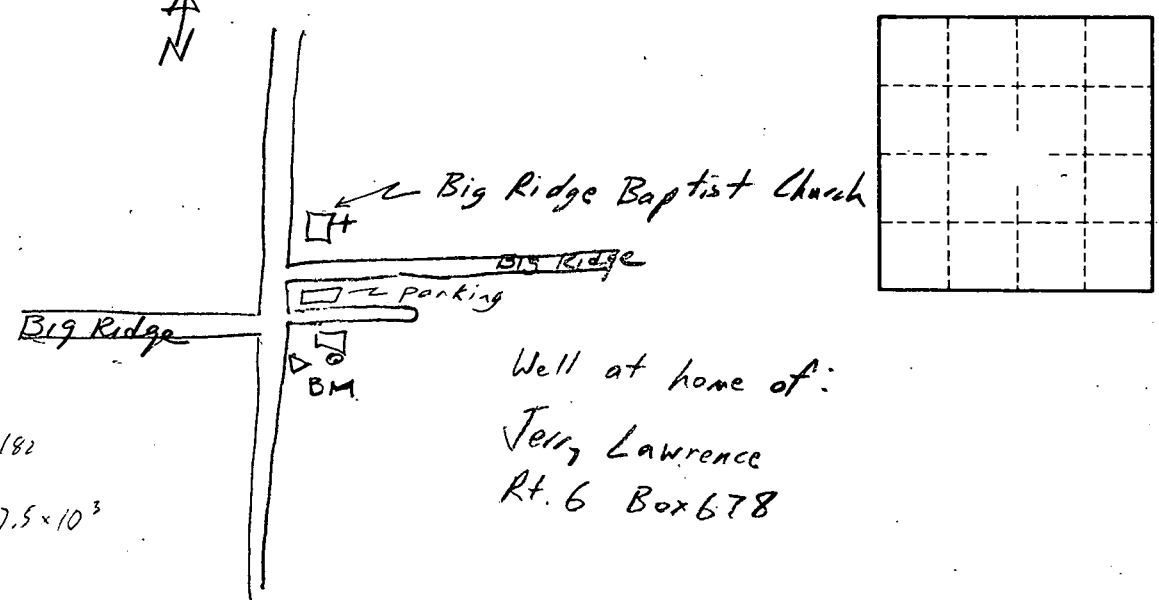 N
Big Ridge Baptist Church
Big Ridge
parking
Big Ridge
BM
Well at home of:
Jerry Lawrence
Rt. 6 Box 678
182
7.5 x 10³